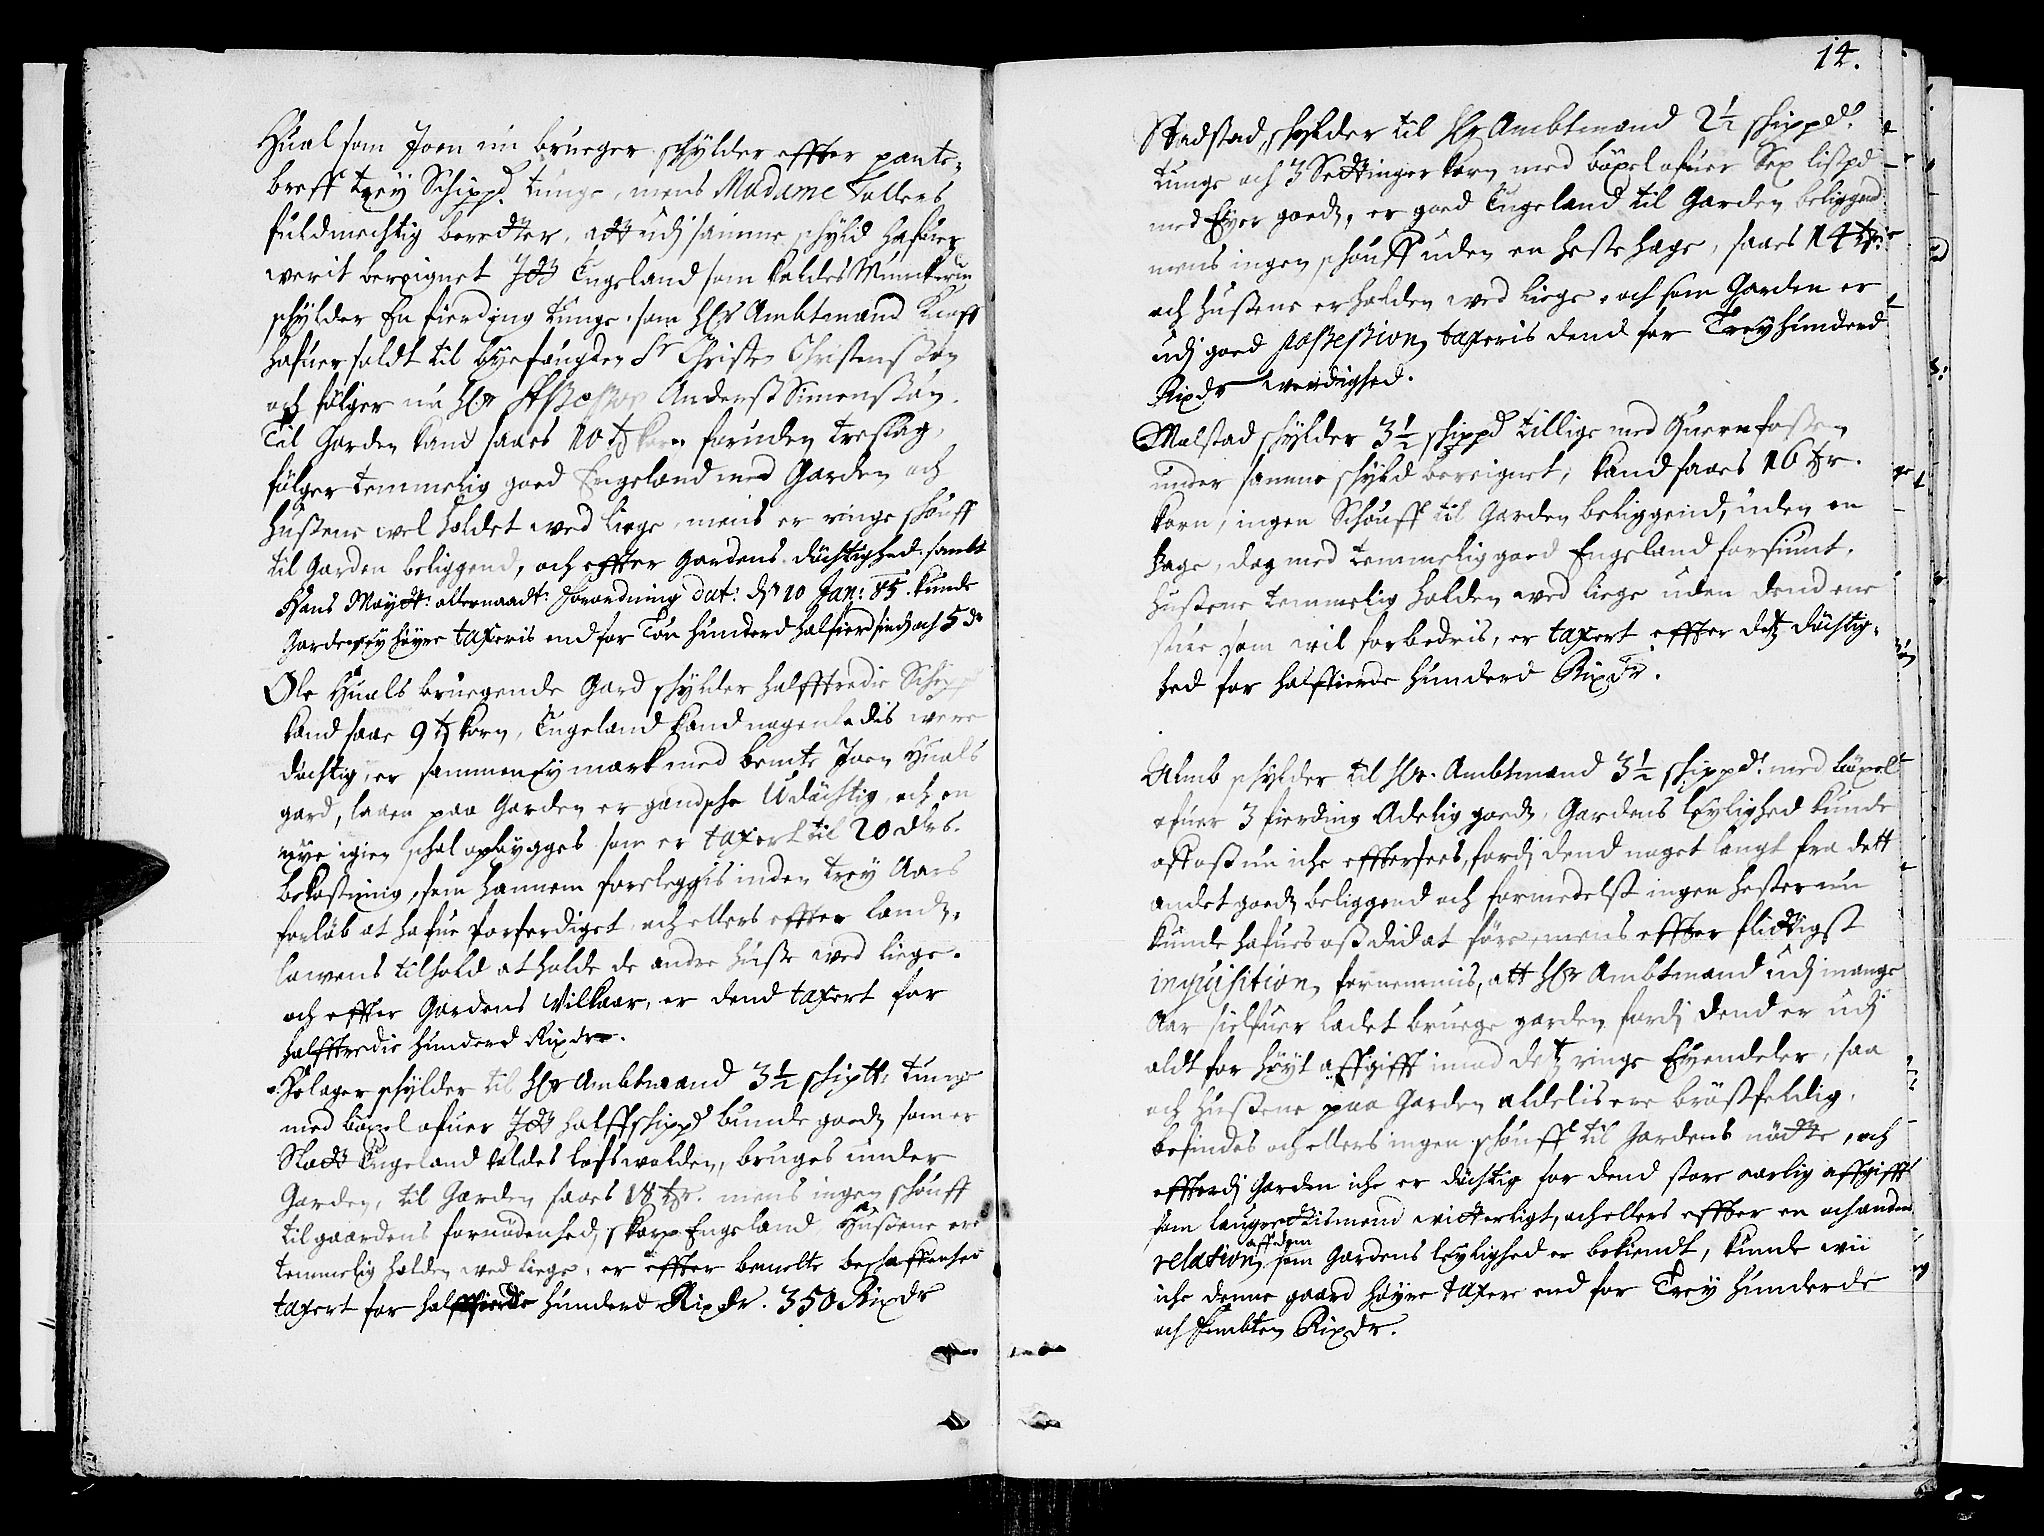 Hual som Joen nu brueger schylder effter pante-
breff trey Schippd. tunge, mens Madame Tollers
fuldmechtig beretter, att udj samme schyld hafuer
werit bereignet Jtt Engeland som kaldes Munkerun
schylder En fierding tunge, som Hr Ambtmand Knoff
hafuer soldt til byefougden Sr Christen Christensøn
och følger nu Hr Assessor Anderss Simenssøn.
Til Garden kand saaes 10 tr korn foruden treslag,
følger temmelig goed Engeland med Garden och
hussene wel holdet wed liige, mens er ringe schouff
til Garden beliggend, och effter Gardens düchtighed samt
Hans Maydt: allernaadt: Forordning dat: d. 10 Jan: 85. kunde
Garden ey høyre taxeris end for Tou hunderd halfierdsinds och 5 dr
Ole Huals bruegende Gard schylder halfftredie Schippd
kand saae 9 tr korn, Engeland kand nogenledis were
düchtig, er sammen ey mark med bemte Joen Huals
gard, laaen paa Garden er gandsche Udüchtig, och en
nye igien schal opbygges som er taxert til 20 dlrs.
bekostning, som hannem foreleggis inden trey Aars
forløb at hafue forferdiget, och ellers effter land-
lowens tilhold at holde de andre husse wed liige.
och effter Gardens Vilkaar, er dend taxert for
halfftredie hunderd Rixdr.
Holager schylder til Hr Ambtmand 3½ schiptt. tunge
med büxel ofuer Jtt halff schippd bunde goeds som er
Slaatt Engeland kaldes lofswolden, bruges under
Garden, til Garden saaes 18 tr. mens ingen schouff
til gaardens fornødenhed, skarp Engeland Hussene ere
temmelig holden wed liige, er effter bemelte beschaffenhed
taxert for halffierde hunderd Rixdr. 350 Rixdr
14.
Stadstad, schylder til Hr Ambtmand 2½ schippd.
tunge och 3 Settinger korn med böxel ofuer Sex lispd
med Eyer goeds, er goed Engeland til Garden beliggend
mens ingen schouff uden en heste hage, saaes 14 tr.
och hussene er holden wed liige, och som Garden er
udj goed possession, taxeris dend for Trey hunderd
Rixdr werdighed.
Malstad schylder 3½ schippd tillige med Quernfossen
under samme schyld bereignet, kand saaes 16 tr.
korn, ingen Schouff til Garden beliggend, uden en
hage, dog med temmelig goed Engeland forsiunt.
Hussene temmelig holden wed liige uden dend ene
stue som wil forbedris, er taxert effter detz düchtig-
hed for halffierde hunderd Rixdr.
Almb schylder til Hr. Ambtmand 3½ schippd. med büxel
ofuer 3 fierding Adelig goeds, Gardens leylighed kunde
aff oss nu iche efftersees, fordj dend noget langt fra dett
andet goeds beliggend och formedelst ingen hester nu
kunde hafues oss did at føre, mens effter flittigst
inquisition, fornemmis, att Hr Ambtmand udj mange
Aar sielfuer ladet bruege garden, fordj dend er udj
aldt for høyt affgifft imod detz ringe Eyendeler, saa
och Hussene paa Garden aldelis ere brøstfeldig,
befindes och ellers ingen schouff til Gardens nødtte, och
effterdj Garden iche er düchtig for dend store aarlig affgifft
som laugrettismend witterligt, och ellers effter en och anden
relation, aff dem som Gardens leylighed er bekiendt, kunde wii
iche denne gaard høyre taxere end for Trey hunderde
och Fembten Rixdr.